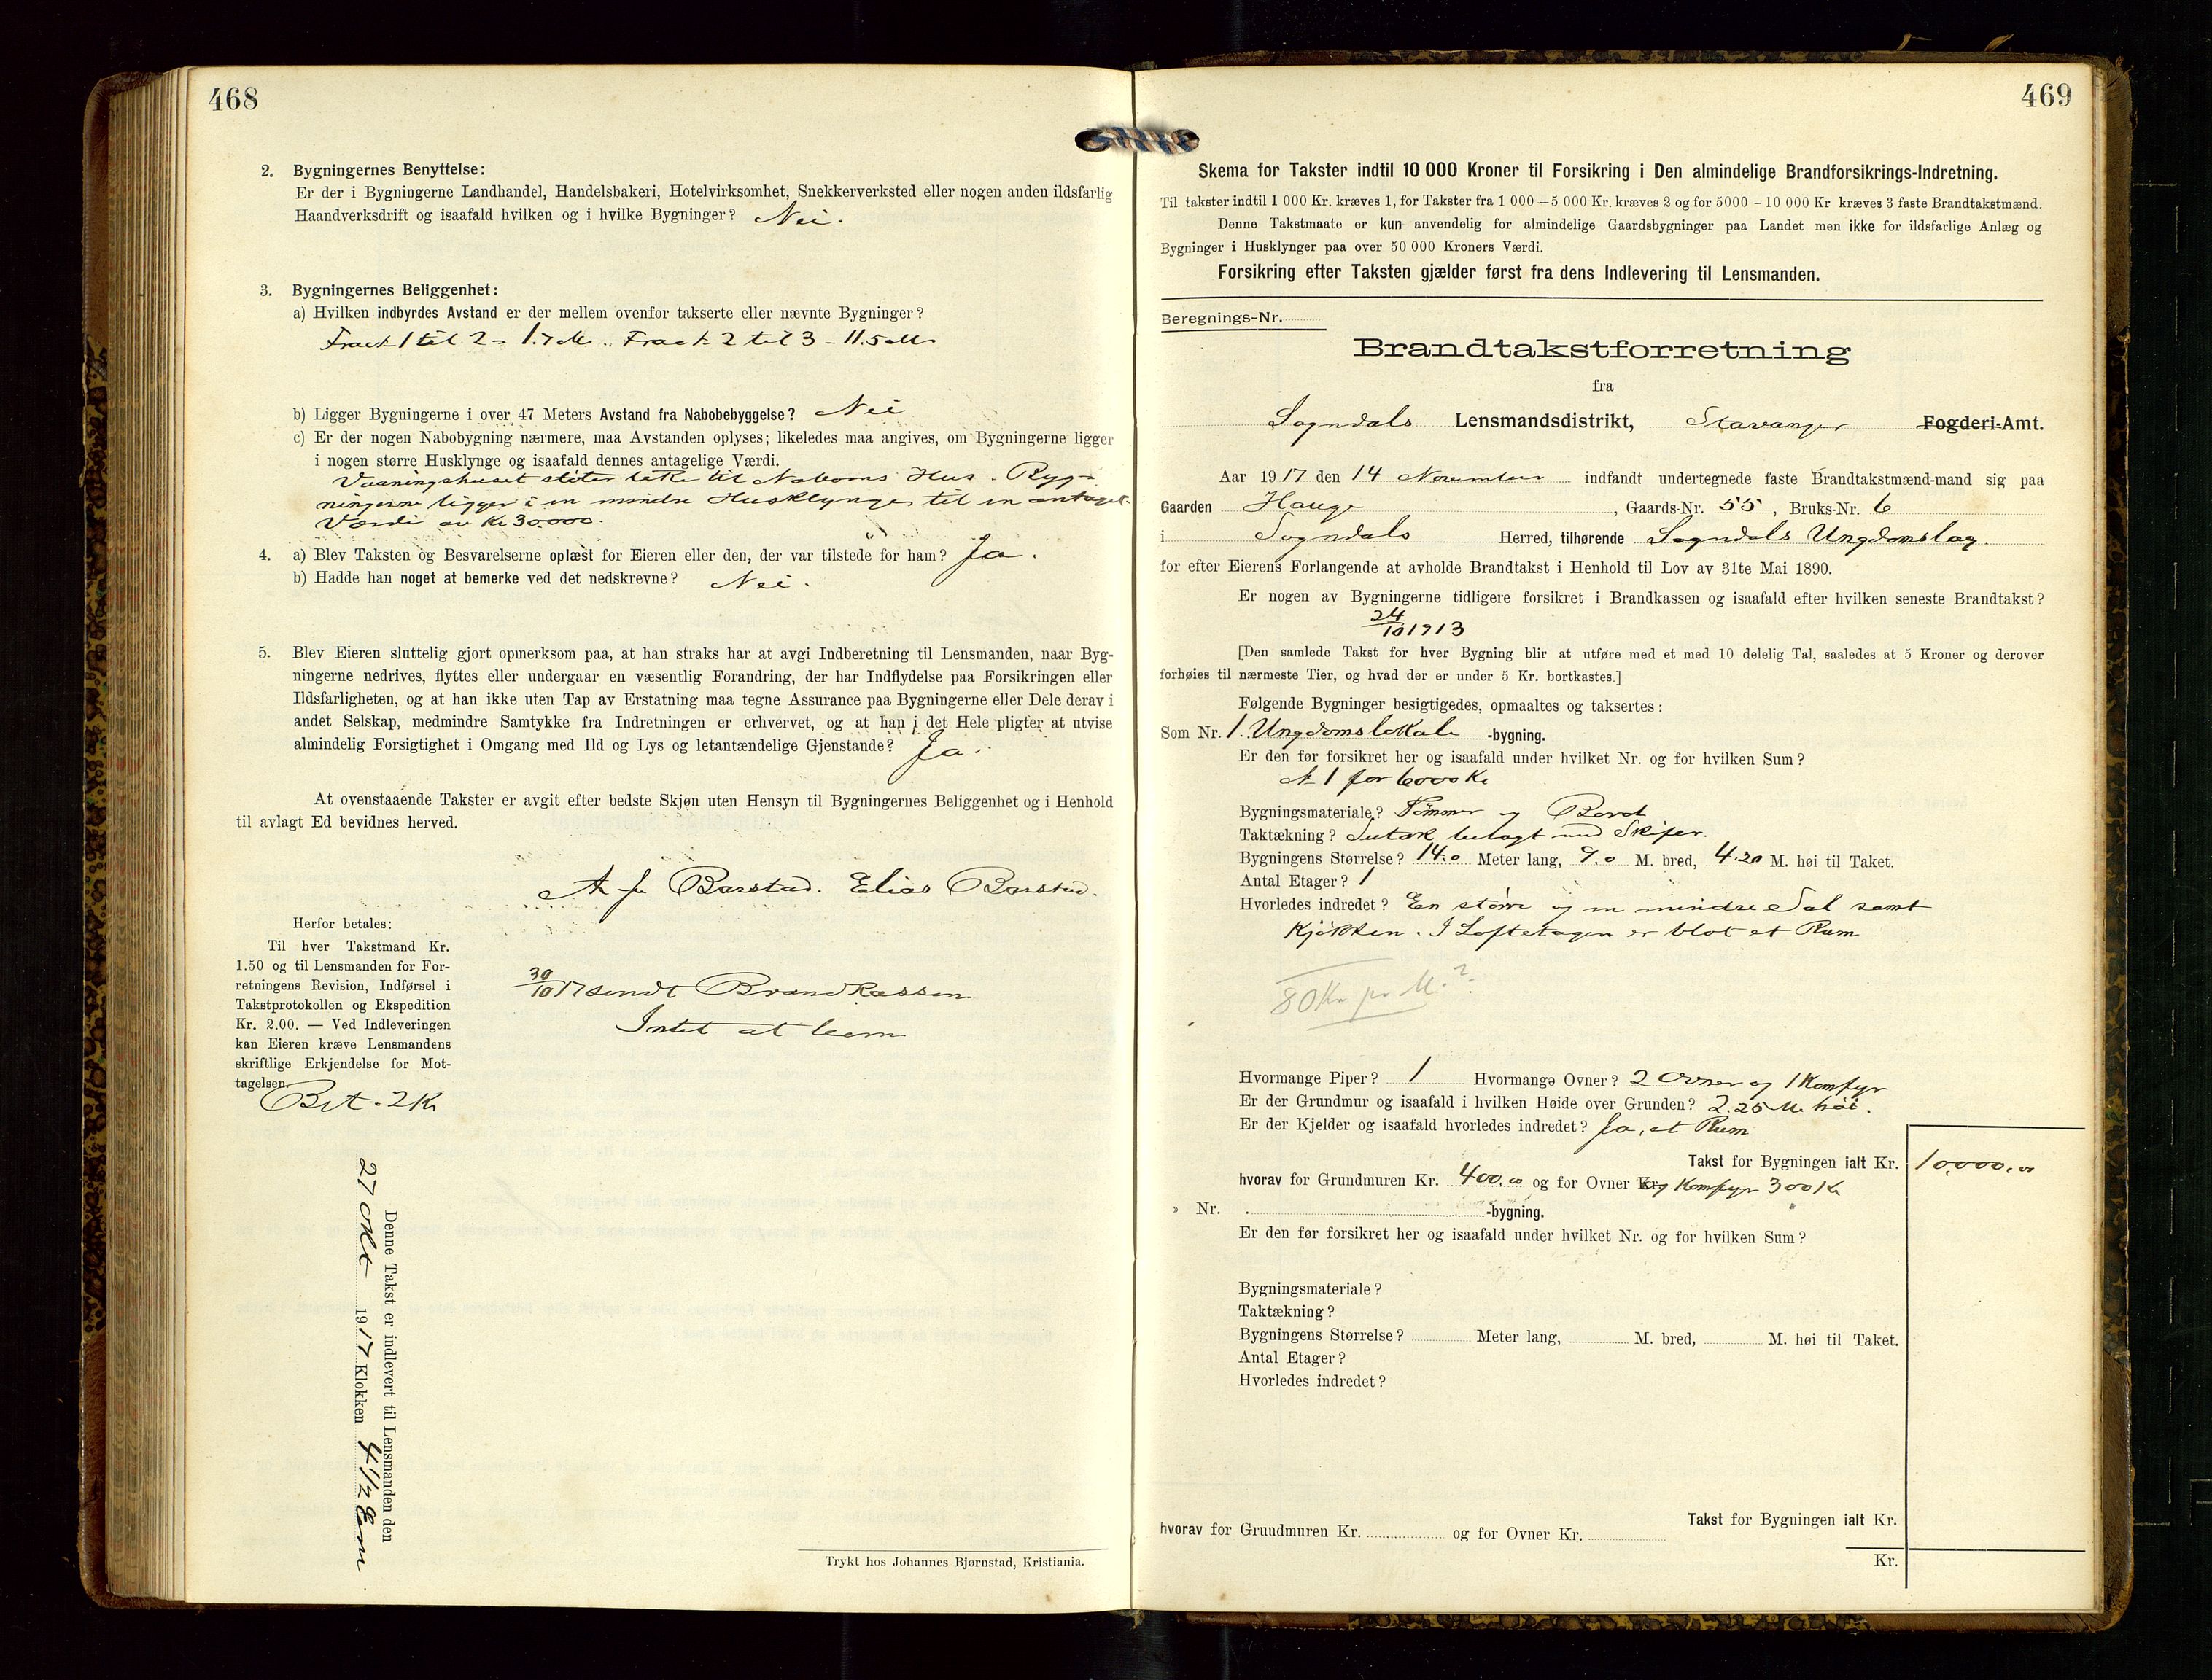 468
2. Bygningernes Benyttelse:
Er der i Bygningerne Landhandel, Handelsbakeri, Hotelvirksomhet, Snekkerverksted eller nogen anden ildsfarlig
Haandverksdrift og isaafald hvilken og i hvilke Bygninger? Nei.
3. Bygningernes Beliggenhet:
a) Hvilken indbyrdes Avstand er der mellem ovenfor takserte eller nævnte Bygninger?
1 til 2 = 1.7 M. 2 til 3 - 11.5 M
b) Ligger Bygningerne i over 47 Meters Avstand fra Nabobebyggelse? Nei
c) Er der nogen Nabobygning nærmere, maa Avstanden oplyses; likeledes maa angives, om Bygningerne ligger
i nogen større Husklynge og isaafald dennes antagelige Værdi.
Vaaningshuset støter tætte til Naboens Hus. Byg-
ningerne ligger i en mindre Husklynge til en antagel.
Værdi av Kr 30.000.
4. a) Blev Taksten og Besvarelserne oplæst for Eieren eller den, der var tilstede for ham? Ja.
b) Hadde han noget at bemerke ved det nedskrevne? Nei.
5. Blev Eieren sluttelig gjort opmerksom paa, at han straks har at avgi Indberetning til Lensmanden, naar Byg-
ningerne nedrives, flyttes eller undergaar en væsentlig Forandring, der har Indflydelse paa Forsikringen eller
Ildsfarligheten, og at han ikke uten Tap av Erstatning maa tegne Assurance paa Bygningerne eller Dele derav i
andet Selskap, medmindre Samtykke fra Indretningen er erhvervet, og at han i det Hele pligter at utvise
almindelig Forsigtighet i Omgang med Ild og Lys og letantændelige Gjenstande? Ja.
At ovenstaaende Takster er avgit efter bedste Skjøn uten Hensyn til Bygningernes Beliggenhet og i Henhold
til avlagt Ed bevidnes herved.
Barstad. Elias Barstad.
Herfor betales:
Til hver Takstmand Kr.
1.50 og til Lensmanden for For-
retningens Revision, Indførsel i
Takstprotokollen og Ekspedition
Kr. 2.00. — Ved Indleveringen
kan Eieren kræve Lensmandens
skriftlige Erkjendelse for Mot-
tagelsen.
Bet. 2 Kr
30/10 17 sendt Brandkassen
Intet at bem
Denne Takst er indlevert til Lensmanden den
27 Okt 1917 Klokken 4 1/2 Em.
Trykt hos Johannes Bjørnstad, Kristiania.
469
Skema for Takster indtil 10 000 Kroner til Forsikring i Den almindelige Brandforsikrings-Indretning.
Til takster indtil 1 000 Kr. kræves 1, for Takster fra 1 000 — 5 000 Kr. kræves 2 og for 5000 – 10 000 Kr kræves 3 faste Brandtakstmænd.
Denne Takstmaate er kun anvendelig for almindelige Gaardsbygninger paa Landet men ikke for ildsfarlige Anlæg og
Bygninger i Husklynger paa over 50 000 Kroners Værdi.
Forsikring efter Taksten gjælder først fra dens Indlevering til Lensmanden.
Beregnings-Nr.
Brandtakstforretning
fra
Sogndals Lensmandsdistrikt, Stavanger Fogderi-Amt.
Aar 1917 den 14 November indfandt undertegnede faste Brandtakstmænd-mand sig paa
Gaarden Hauge, Gaards-Nr. 55, Bruks-Nr. 6
i Sogndals Herred, tilhørende Sogndals Ungdomslag.
for efter Eierens Forlangende at avholde Brandtakst i Henhold til Lov av 31te Mai 1890.
Er nogen av Bygningerne tidligere forsikret i Brandkassen og isaafald efter hvilken seneste Brandtakst?
24/10 1913
[Den samlede Takst for hver Bygning blir at utføre med et med 10 delelig Tal, saaledes at 5 Kroner og derover
forhøies til nærmeste Tier, og hvad der er under 5 Kr. bortkastes.]
Følgende Bygninger besigtigedes, opmaaltes og taksertes:
Som Nr. 1. Ungdomslokale -bygning.
Er den før forsikret her og isaafald under hvilket Nr. og for hvilken Sum?
N 1 for 6000 Kr
Bygningsmateriale? Tømmer og Bord
Taktækning? Sutak belagt med Skifer.
Bygningens Størrelse? 14.0 Meter lang, 9.0 M. bred, 4.20 M. høi til Taket.
Antal Etager? 1
Hvorledes indredet? En større og en mindre Sal samt
Kjøkken. I Loftetagen er blot et Rum
80 Kr pr M.²
Hvormange Piper? 1 Hvormange Ovner? 2 Ovner og 1 Komfyr
Er der Grundmur og isaafald i hvilken Høide over Grunden? 2.25 M. høi.
Er der Kjelder og isaafald hvorledes indredet? Ja, et Rum
Takst for Bygningen ialt Kr. 10,000,00
hvorav for Grundmuren Kr. 400,00 og for Ovner Kr. og Komfyr 300 Kr
» Nr. -bygning.
Er den før forsikret her og isaafald under hvilket Nr. og for hvilken Sum?
Bygningsmateriale?
Taktækning?
Bygningens Størrelse? Meter lang, M. bred, M. høi til Taket.
Antal Etager?
Hvorledes indredet?
Takst for Bygningen ialt Kr.
hvorav for Grundmuren Kr. og for Ovner Kr.
Kr.